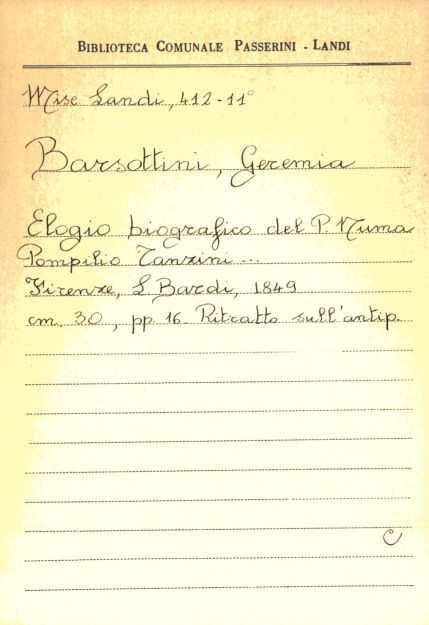 BIBLIOTECA COMUNALE PASSERINI - LANDI
Misc Landi, 412-11°
Barsottini, Geremia
Elogio biografico del P. Numa
Pompilio Tanzini ...
Firenze, L Bardi, 1849
cm. 30, pp 16. Ritratto sull'antip.
C